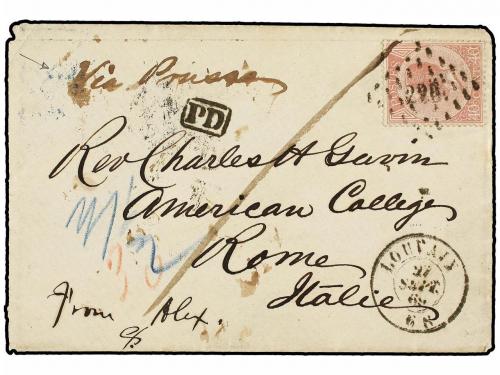 Via Prusse
226
PD
Rev Charles A Gavin
American College
Rome
Italie
LOUVAIN
27
SEPT
6 S
From Alex.